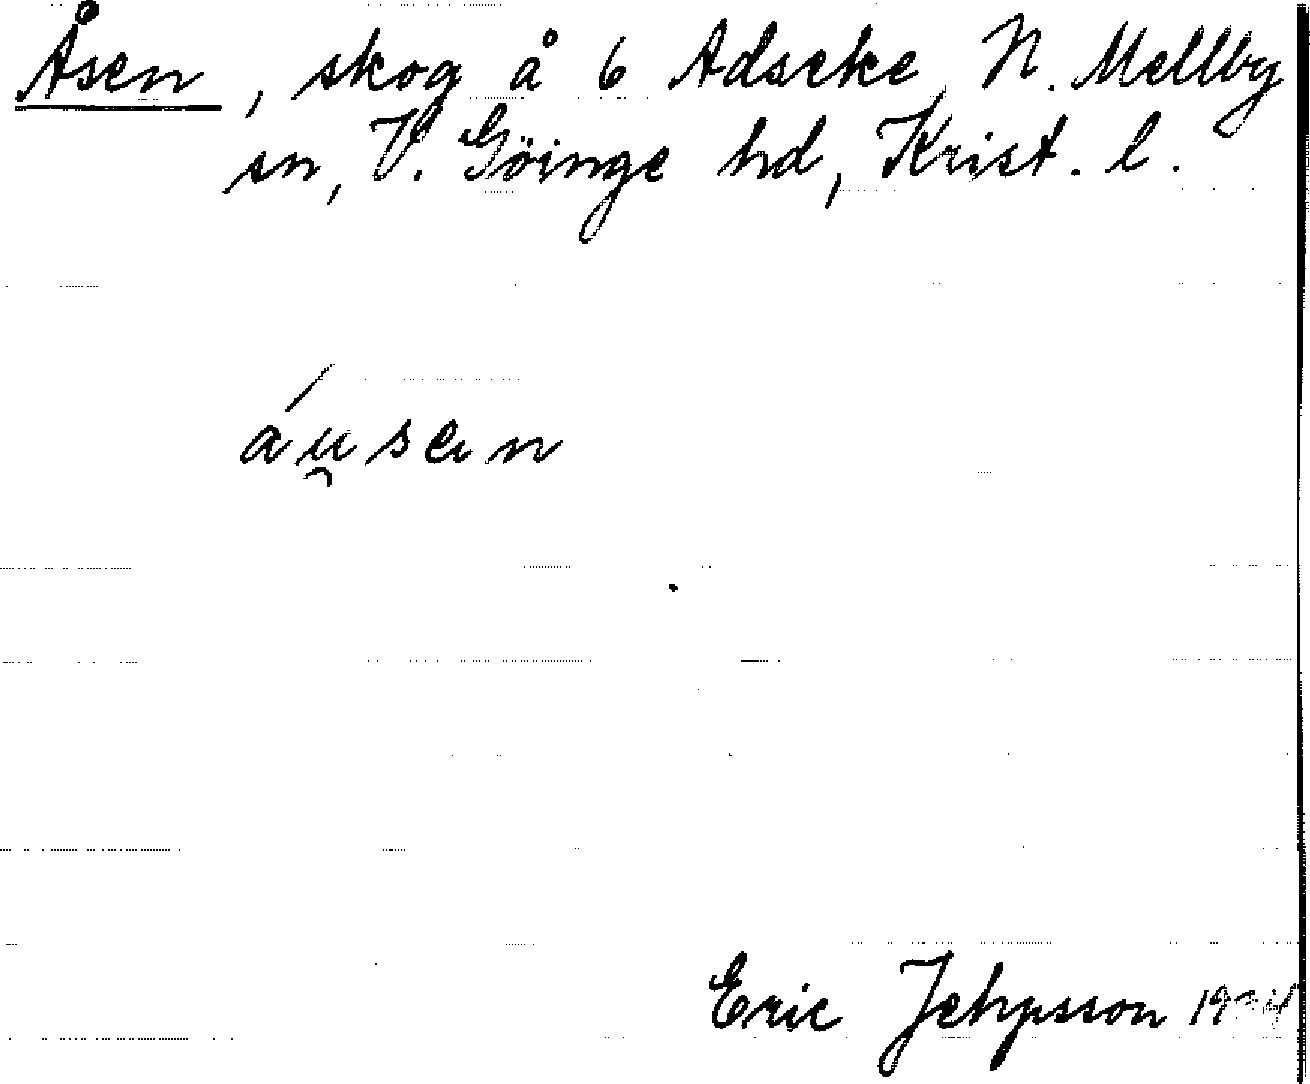 Åsen, skog å 6 Adseke, N. Mellby
sn, V. Göinge hd, Krist. l.
áu̯sen
Eric Jehpsson